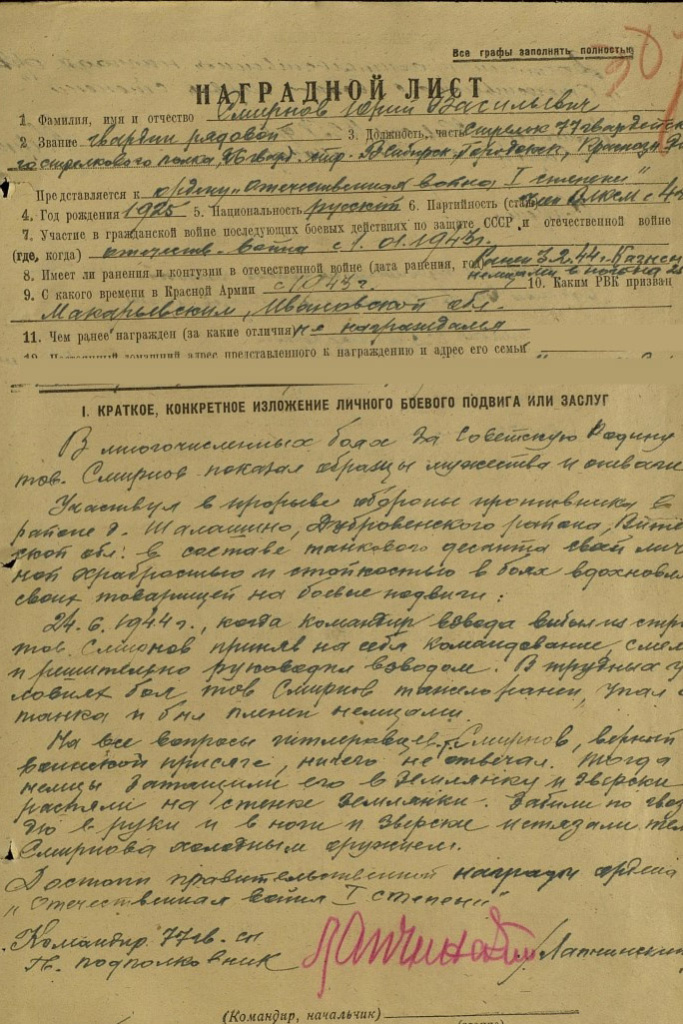 Все графы заполнять полностью
НАГРАДНОЙ ЛИСТ
1. Фамилия, имя и отчество Смирнов Юрий Васильевич
2 Звание гвардии рядовой 3. Должность, часть Стрелок 77 гвардейск
го стрелкового полка, 26 гвард. стр.
Представляется к ордену „Отечественная война I степени"
4. Год рождения 1925 5. Национальность русский 6. Партийность ВЛКСМ с
7. Участие в гражданской войне последующих боевых действиях по защите СССР и отечественной войне
(где, когда) отечеств. война с 1.01.1943г.
8. Имеет ли ранения и контузии в отечественной войне (дата ранения, Казнен
немцами в
9. С какого времени в Красной Армии с 1943 г. 10. Каким РВК призван
Макарьевским, Ивановской обл.
11. Чем ранее награжден (за какие отличия) не награждался
12. Постоянный домашний адрес представленного к награждению и адрес его семьи
I. КРАТКОЕ, КОНКРЕТНОЕ ИЗЛОЖЕНИЕ ЛИЧНОГО БОЕВОГО ПОДВИГА ИЛИ ЗАСЛУГ
В многочисленных боях за Советскую Родину
тов. Смирнов показал образцы мужества и отваги
Участвуя в прорыве обороны противника в
районе д. Шалашино, Дубровенского района, Вите
ской обл. в составе танкового десанта свой лич
ной храбростью и стойкостью в боях вдохновля
своих товарищей на боевые подвиги:
24.6.1944г., когда командир взвода выбыл из стро
тов. Смирнов приняв на себя командование, смел
и решительно руководил взводом. В трудных у
ловиях боя тов Смирнов тяжело ранен, упал с
танка и был пленен немцами.
На все вопросы гитлеровцев, Смирнов, верный
воинской присяге, ничего не отвечал. Тогда
немцы затащили его в землянку и зверски
распяли на стенке землянки. Забили по гвоз
дю в руки и в ноги и зверски истязали тел
Смирнова холодным оружием.
Достоин правительственной награды ордена
„Отечественная война I степени"
Командир 77 гв. сп
Гв. подполковник
(Командир, начальчик)